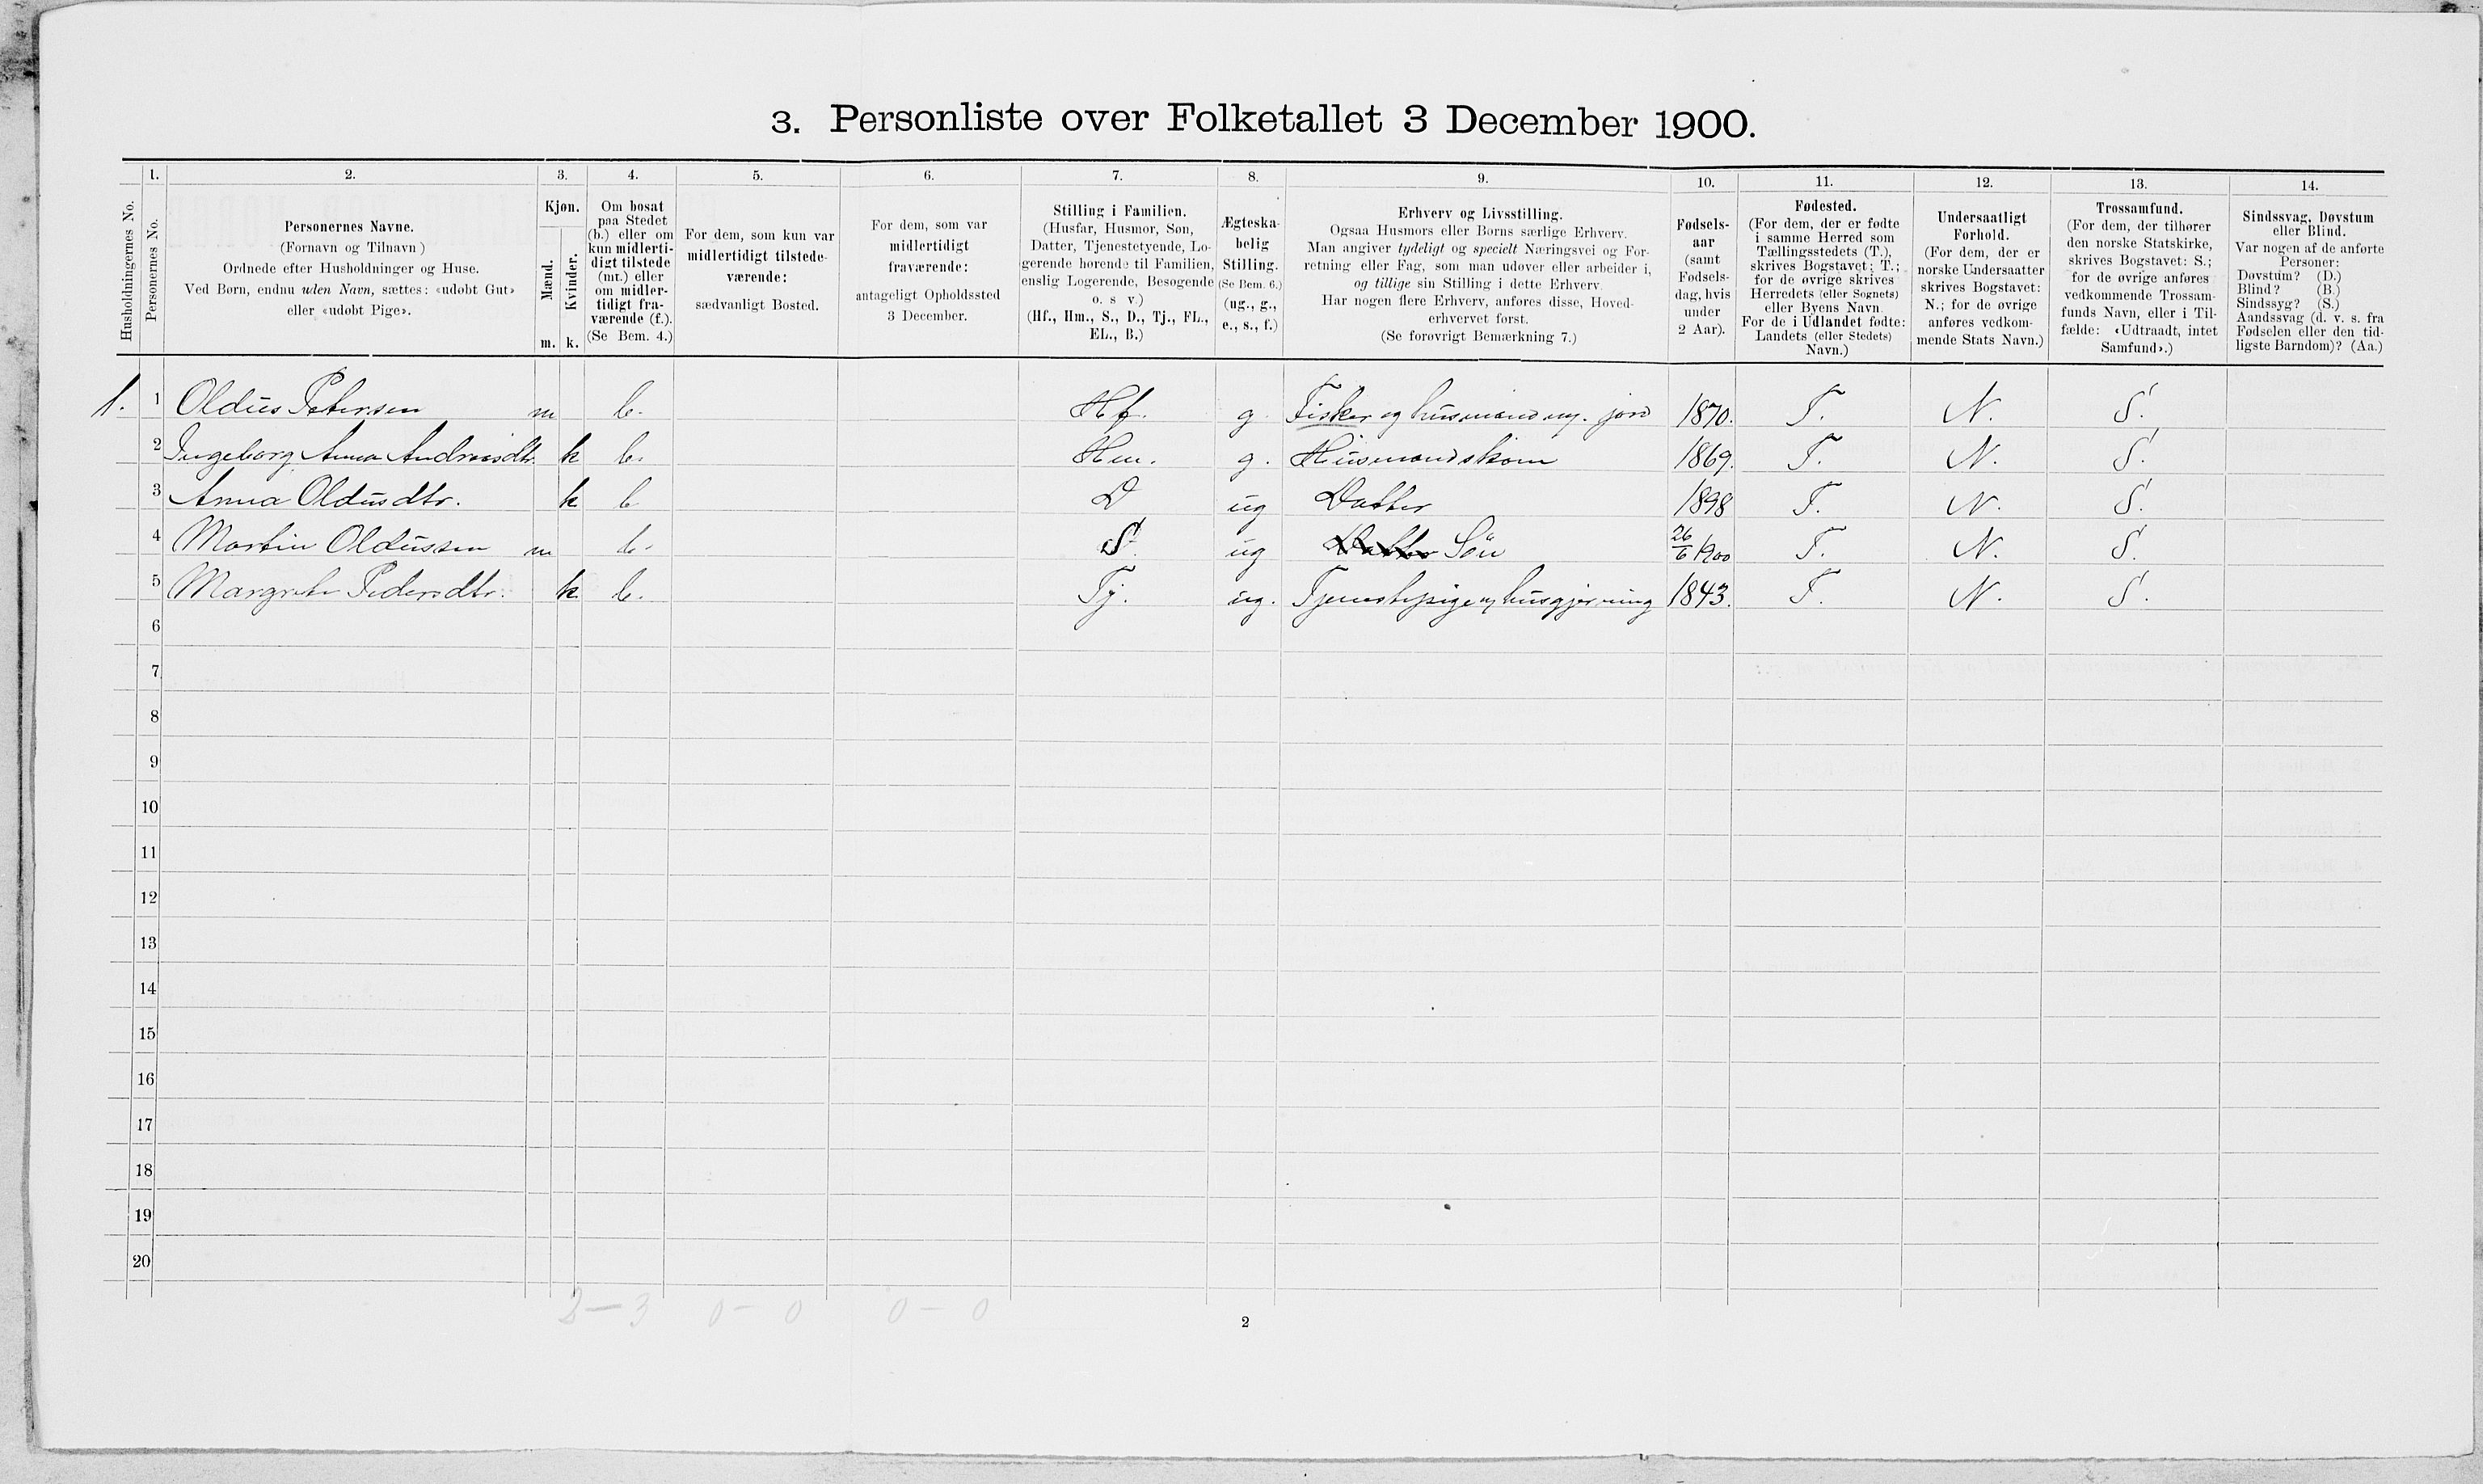 3. Personliste over Folketallet 3 December 1900.
Husholdningernes No.
1. Personernes No.
2. Personernes Navne.
(Fornavn og Tilnavn)
Ordnede efter Husholdninger og Huse.
Ved Børn, endnu uden Navn, sættes: «udøbt Gut»
eller «udøbt Pige».
3. Kjøn.
Mænd. Kvinder.
m. k.
4. Om bosat
paa Stedet
(b.) eller om
kun midlerti-
digt tilstede
(mt.) eller
om midler-
tidigt fra-
værende (f.).
(Se Bem. 4.)
5. For dem, som kun var
midlertidigt tilstede-
værende:
sædvanligt Bosted.
6. For dem, som var
midlertidigt
fraværende:
antageligt Opholdssted
3 December.
7. Stilling i Familien.
(Husfar, Husmor, Søn,
Datter, Tjenestetyende, Lo-
gerende hørende til Familien,
enslig Logerende, Besøgende
o. s v.)
(Hf., Hm., S., D., Tj., FL.,
EL., B.)
8. Ægteska-
belig
Stilling.
(Se Bem. 6.)
(ug., g.,
e., s., f.)
9. Erhverv og Livsstilling.
Ogsaa Husmors eller Børns særlige Erhverv.
Man angiver tydeligt og specielt Næringsvei og For-
retning eller Fag, som man udøver eller arbeider i,
og tillige sin Stilling i dette Erhverv.
Har nogen flere Erhverv, anføres disse, Hoved-
erhvervet først.
(Se forøvrigt Bemærkning 7.)
10. Fødsels-
aar
(samt
Fødsels-
dag, hvis
under
2 Aar).
11. Fødested.
(For dem, der er fødte
i samme Herred som
Tællingsstedets (T.),
skrives Bogstavet: T.;
for de øvrige skrives
Herredets (eller Sognets)
eller Byens Navn.
For de i Udlandet fødte:
Landets (eller Stedets)
Navn.)
12. Undersaatligt
Forhold.
(For dem, der er
norske Undersaatter
skrives Bogstavet:
N.; for de øvrige
anføres vedkom-
mende Stats Navn.)
13. Trossamfund.
(For dem, der tilhører
den norske Statskirke,
skrives Bogstavet: S.;
for de øvrige anføres
vedkommende Trossam-
funds Navn, eller i Til-
fælde: «Udtraadt, intet
Samfund».)
14. Sindssvag, Døvstum
eller Blind.
Var nogen af de anførte
Personer:
Døvstum? (D.)
Blind? (B.)
Sindssyg? (S.)
Aandssvag (d. v. s. fra
Fødselen eller den tid-
ligste Barndom)? (Aa.)
1. 1 Oldus Petersen m b. Hf. g. Fisker og husmand m. jord 1870. T. N. S.
2 Ingeborg Anna Andreasdtr. k b. Hm. g. Husmandskone 1869. T. N. S.
3 Anna Oldusdtr. k b D ug Datter 1898 T. N. S.
4 Martin Oldussen m b. S. ug Datter Søn 26/6 1900 T. N. S.
5 Margrethe Pedersdtr. k b. Tj. ug. Tjenestepige og husgjerning 1843. T. N. S.
6
7
8
9
10
11
12
13
14
15
16
17
18
19
20
2 – 3 0 – 0 0 – 0
2